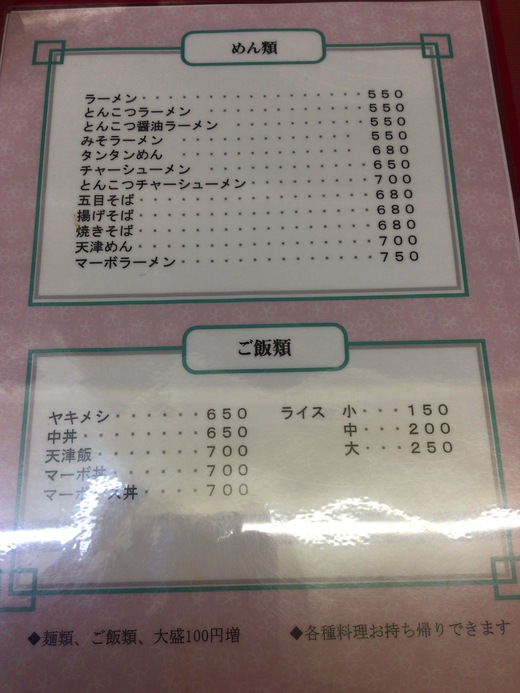 めん類
ラーメン・・・・・・・・・・・・・・・・・550
とんこつラーメン・・・・・・・・・・・・・550
とんこつ醤油ラーメン・・・・・・・・・・・550
みそラーメン・・・・・・・・・・・・・・・550
タンタンめん・・・・・・・・・・・・・・・680
チャーシューメン・・・・・・・・・・・・・650
とんこつチャーシューメン・・・・・・・・・700
五目そば・・・・・・・・・・・・・・・・・680
揚げそば・・・・・・・・・・・・・・・・・680
焼きそば・・・・・・・・・・・・・・・・・680
天津めん・・・・・・・・・・・・・・・・・700
マーボラーメン・・・・・・・・・・・・・・750
ご飯類
ヤキメシ・・・・・・650
中丼・・・・・・・・650
天津飯・・・・・・・700
マーボ丼・・・・・・700
マーボ ス丼・・・・700
ライス 小・・・150
中・・・200
大・・・250
◆麺類、ご飯類、大盛100円増
◆各種料理お持ち帰りできます